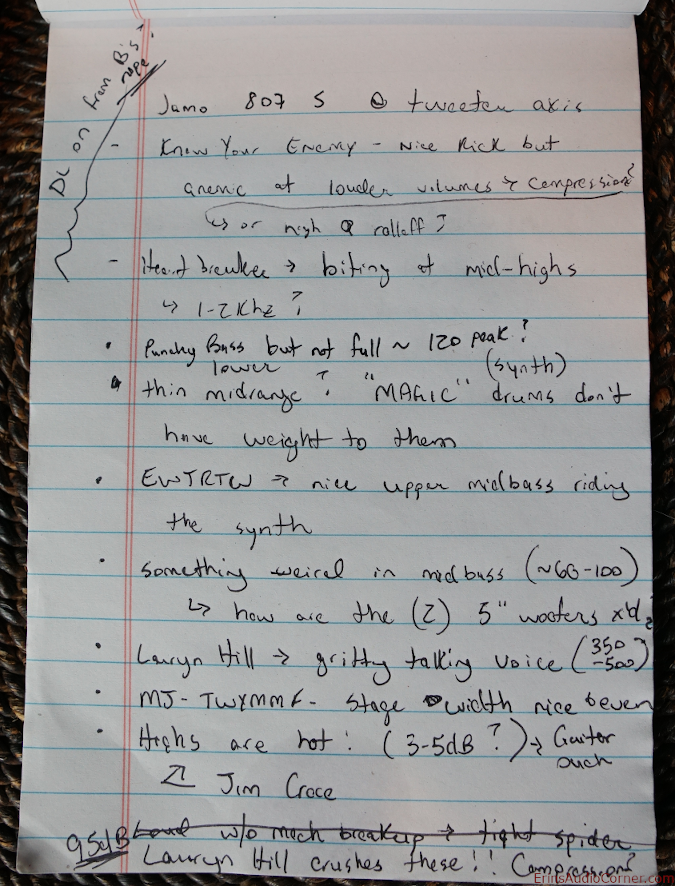 DL on from B's!
nope
Jamo 807 S @ tweeter axis
- Know Your Enemy - Nice Kick but
anemic at louder volumes → compression?
↳ or high Q rolloff?
- Heartbreaker → biting at mid-highs
↳ 1-2Khz?
• Punchy Bass but not full ~ 120 peak?
• thin lower midrange? "MAGIC" (synth) drums don't
have weight to them
• EWTRTW → nice upper midbass riding
the synth
• Something weird in midbass (~60-100)
↳ how are the (2) 5" woofers xo'd?
• Lauryn Hill → gritty talking voice (350-500)
• MJ - TWYMMF - stage width nice & even
• Highs are hot! (3-5dB?) → Guitar
ouch
Jim Croce
95dB Loud w/o mech breakup → tight spider
Lauryn Hill crushes these!! Compression?
ErinsAudioCorner.com